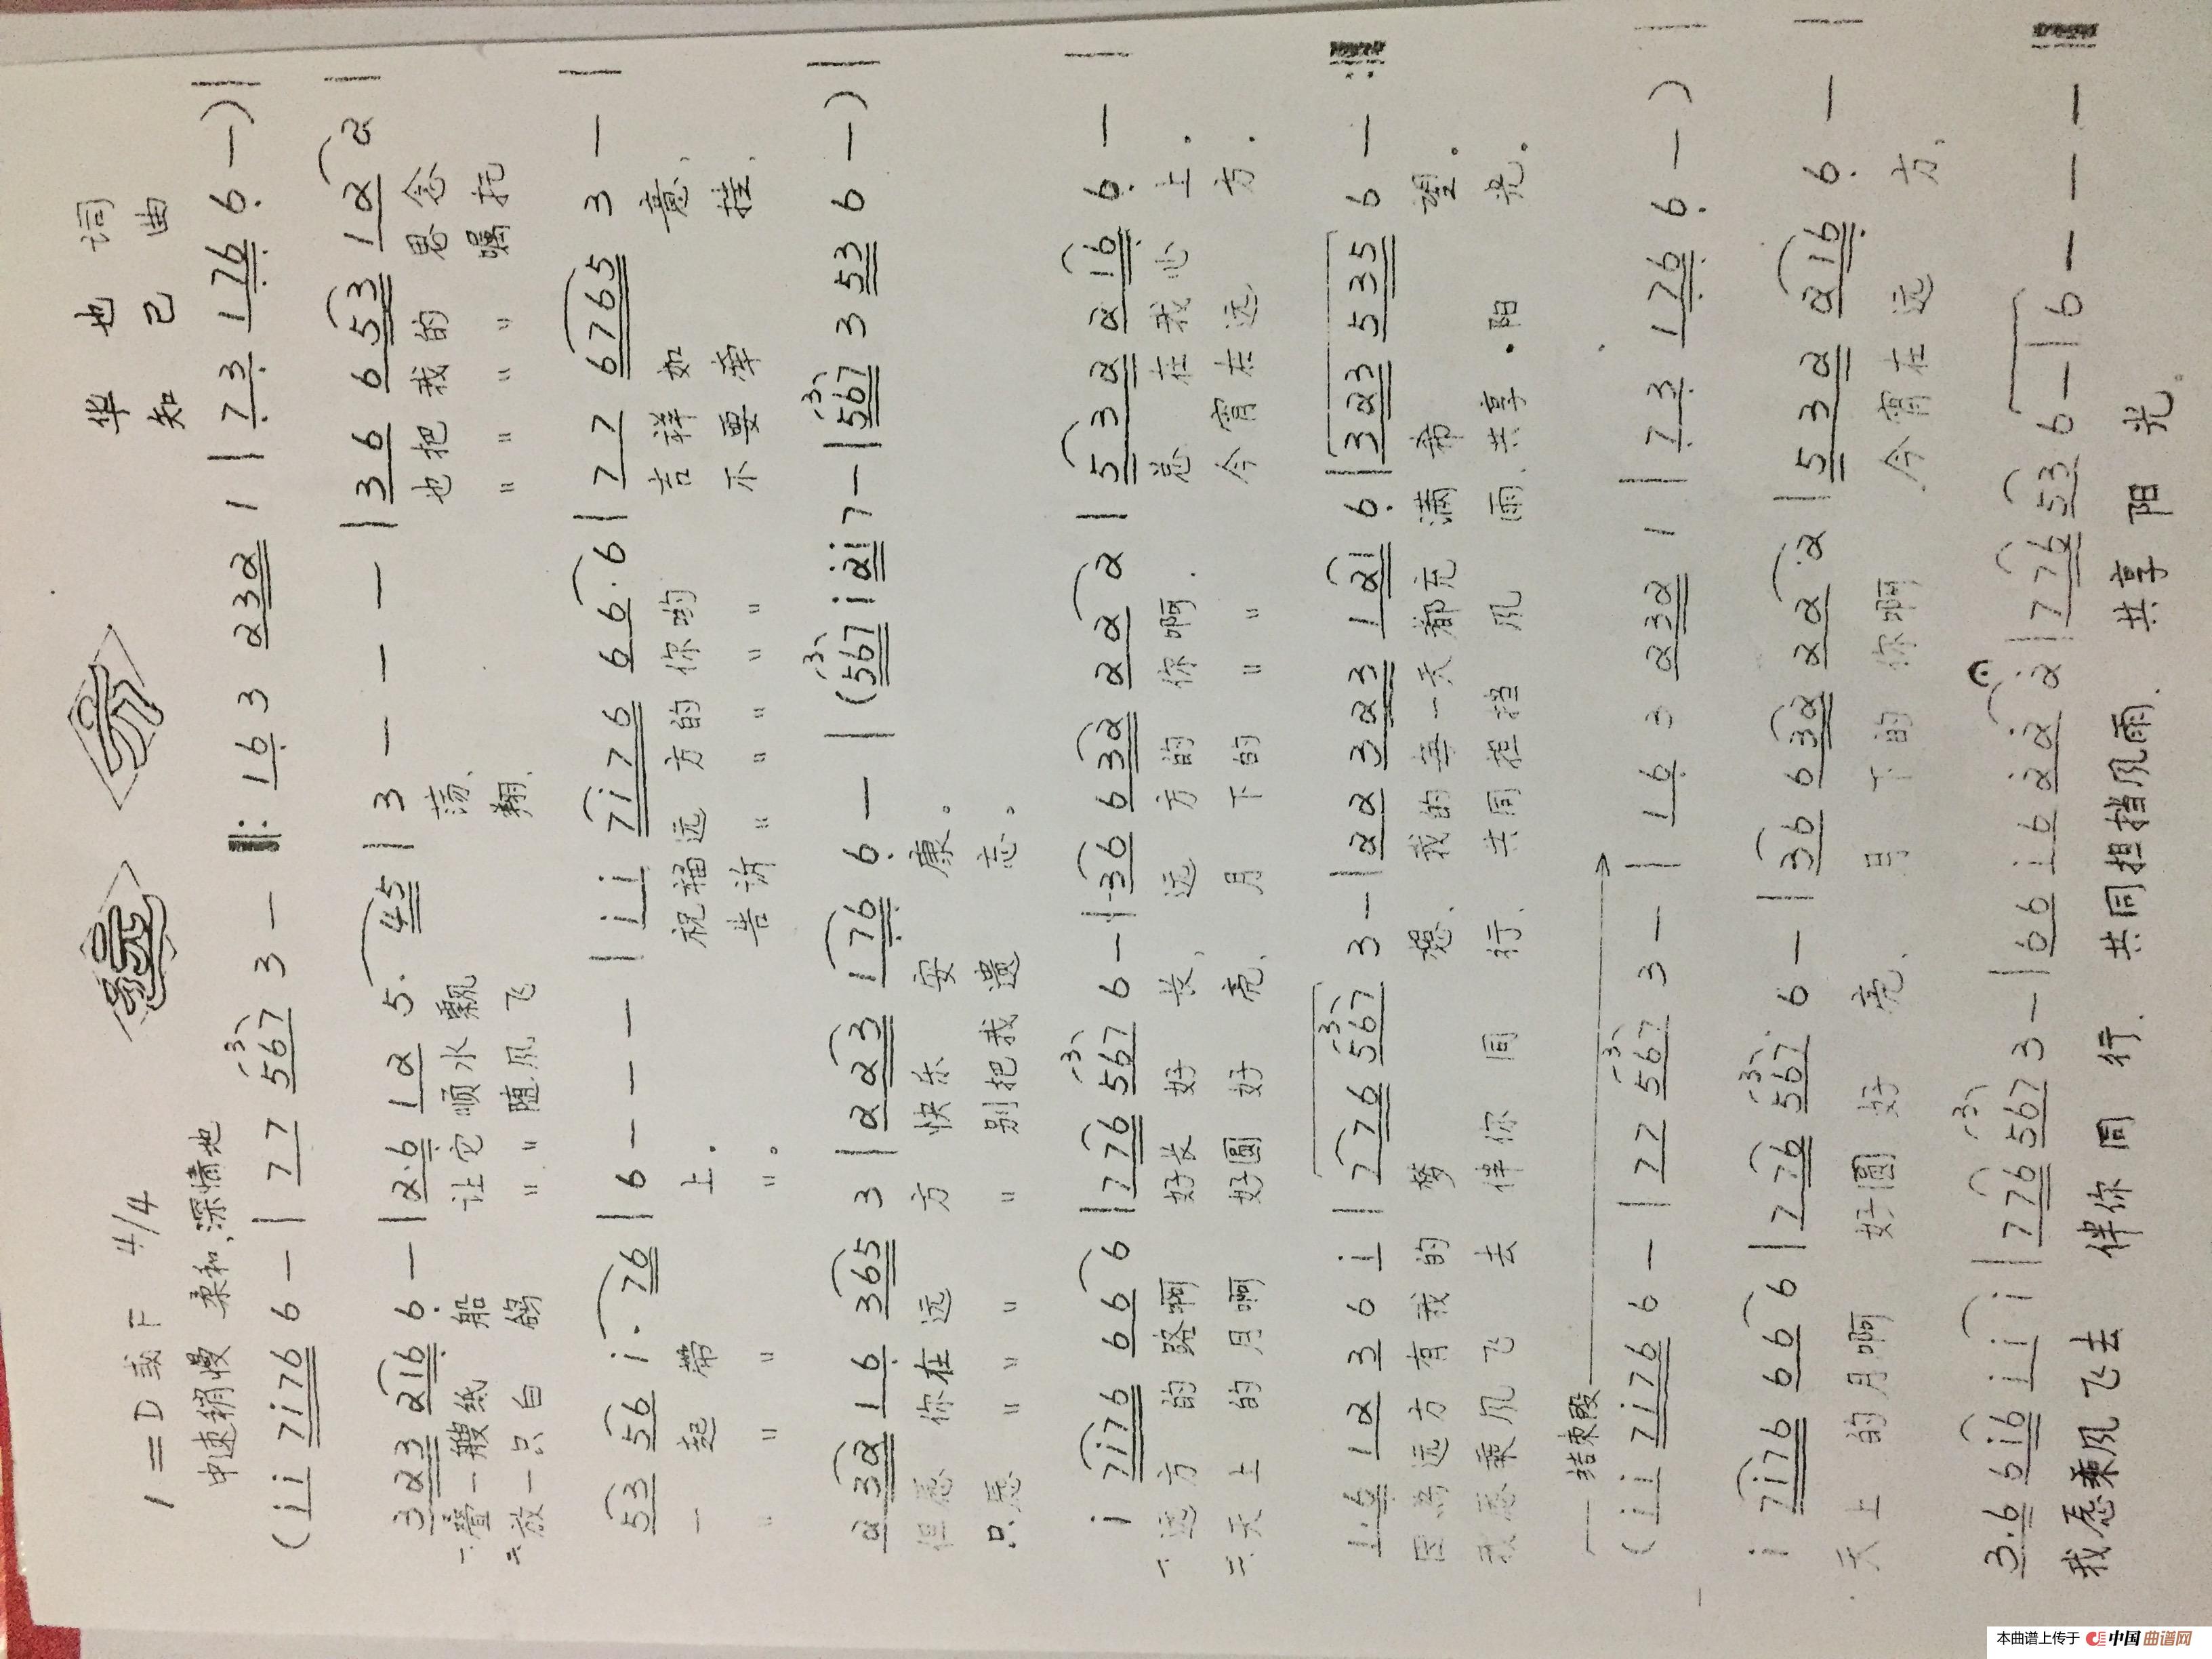 远方
1=D或F 4/4
华也 词
知己 曲
中速稍慢 柔和、深情地
(i i 7i76 6 - | 7 7 567 3 - ‖: 1 6 3 232 1 | 7 3 1 76 6 - )|
3 23 216 6 - | 2·6 1 2 5· 45 | 3 - - - | 3 6 6 53 1 2 2 |
一.叠一艘纸船 让它顺水飘荡、 也把我的思念
二.放一只白鸽 " " 随风飞翔、 " " " " 嘱托
53 56 i· 76 | 6 - - - | i i 7i76 6 6· 6 | 7 7 6765 3 - |
一起带上. 祝福远方的你哟 吉祥如意、
" " " ". 告诉 " " " " " 不要牵挂、
2 32 1 6 365 3 | 2 23 1 76 6 - | (567 i 2i 7 - | 567 3 53 6 - )|
但愿你在远方 快乐安康。
只愿 " " " " 别把我遗忘。
i 7i76 6 6 6 | 7 76 567 6 - | 36 6 32 2 2 2 | 5 3 2 2 16 6 - |
一.远方的路啊 好长好长、 远方的你啊. 总在我心上.
二.天上的月啊 好圆好亮、 月下的 " " 今宵在远方.
1·6 1 2 3 6 i | 7 76 567 3 - | 2 2 3 23 1 21 6 | 3 23 5 35 6 - :‖
因为远方有我的梦想、 我的每一天都充满希望。
我愿乘风飞去 伴你同行、 共同担挡风雨、共享阳光。
结束段
(i i 7i76 6 - | 7 7 567 3 - | 1 6 3 232 1 | 7 3 1 76 6 - )
i 7i76 6 6 6 | 7 76 567 6 - | 36 6 32 2 2·2 | 5 3 2 2 16 6 - |
天上的月啊 好圆好亮、 月下的你啊 今宵在远方、
3·6 6i6 i i i | 7 76 567 3 - | 6 6 i 6 2 2 2 | 7 76 53 6 - | 6 - - - ‖
我愿乘风飞去 伴你同行. 共同担挡风雨、 共享阳光。
本曲谱上传于 中国曲谱网